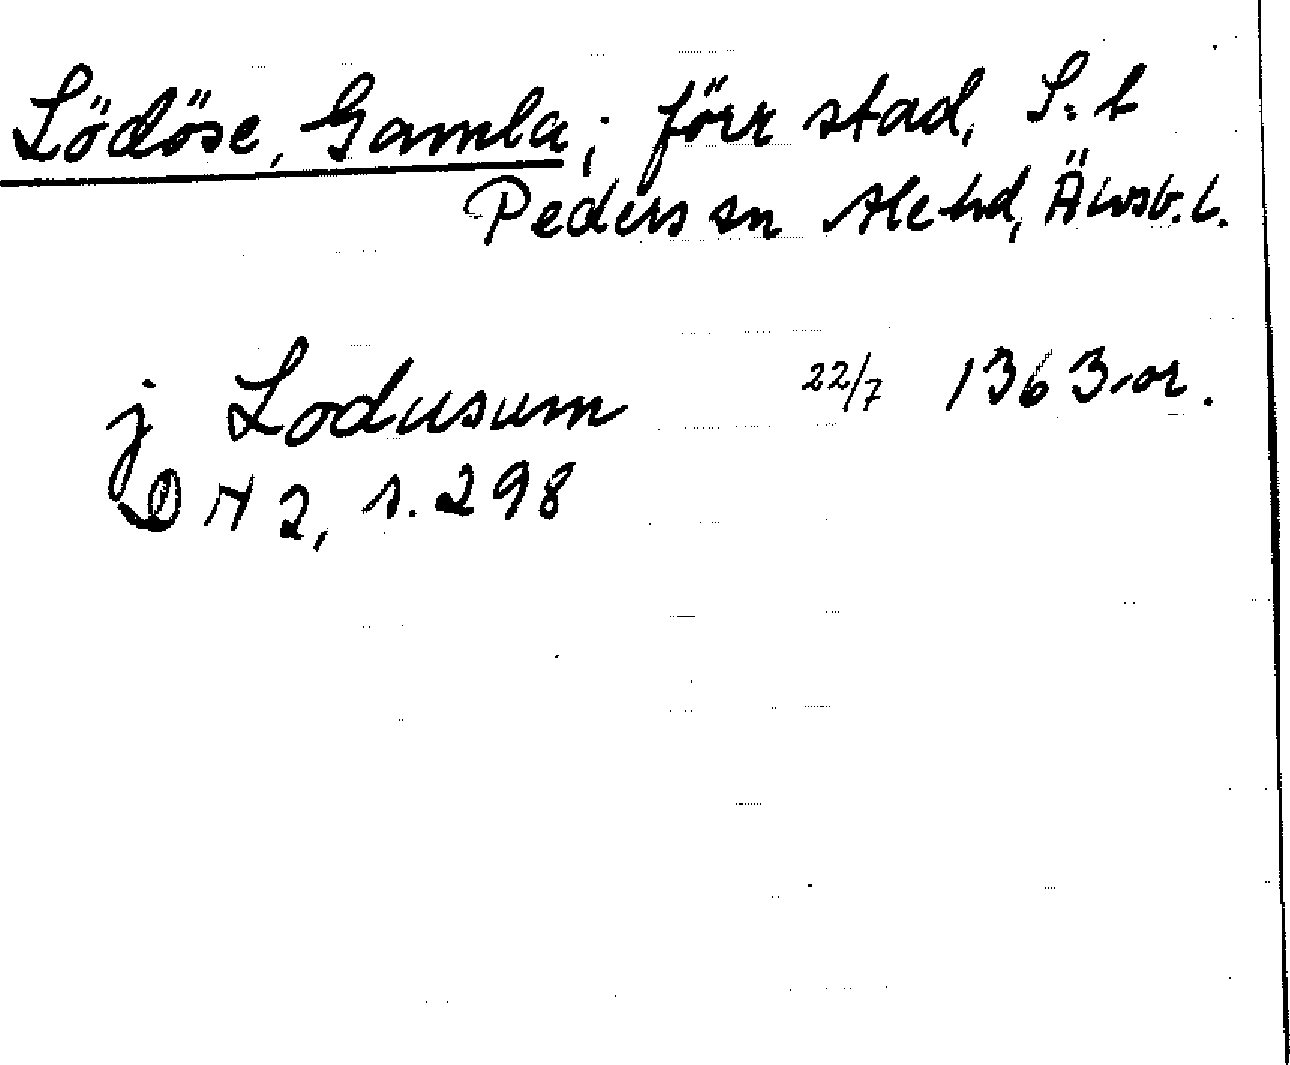 Lödöse, Gamla; förr stad, S:t
Peders sn Ale hd, Älvsb. l.
j Lodusum 22/7 1363 or.
DN 2, s. 298